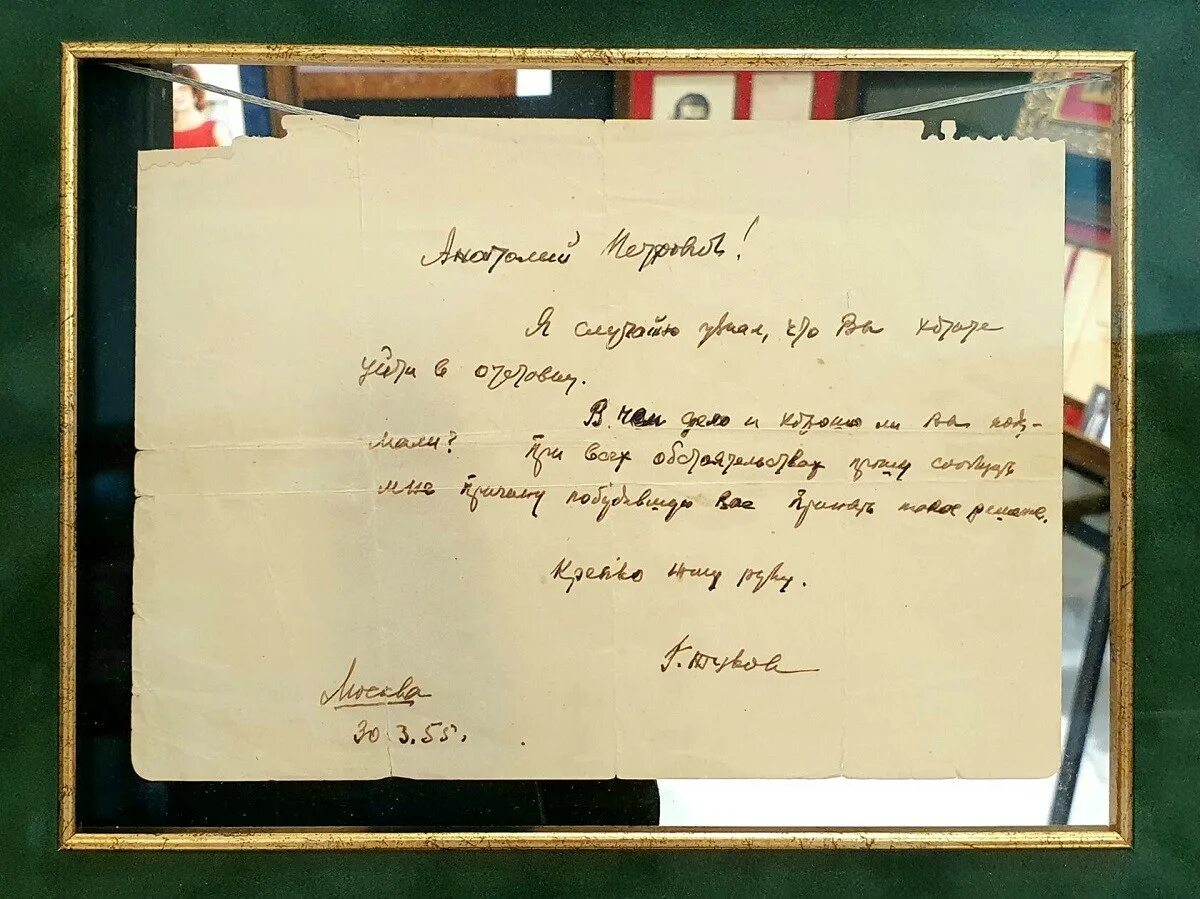 Анатолий Петрович!
Я случайно узнал, что Вы хотите
уйти в отставку.
В чем дело и хорошо ли Вы поду-
мали? При всех обстоятельствах прошу сообщить
мне причину побудившую Вас принять такое решение.
Крепко жму руку.
Г. Жуков
Москва
30.3.55.